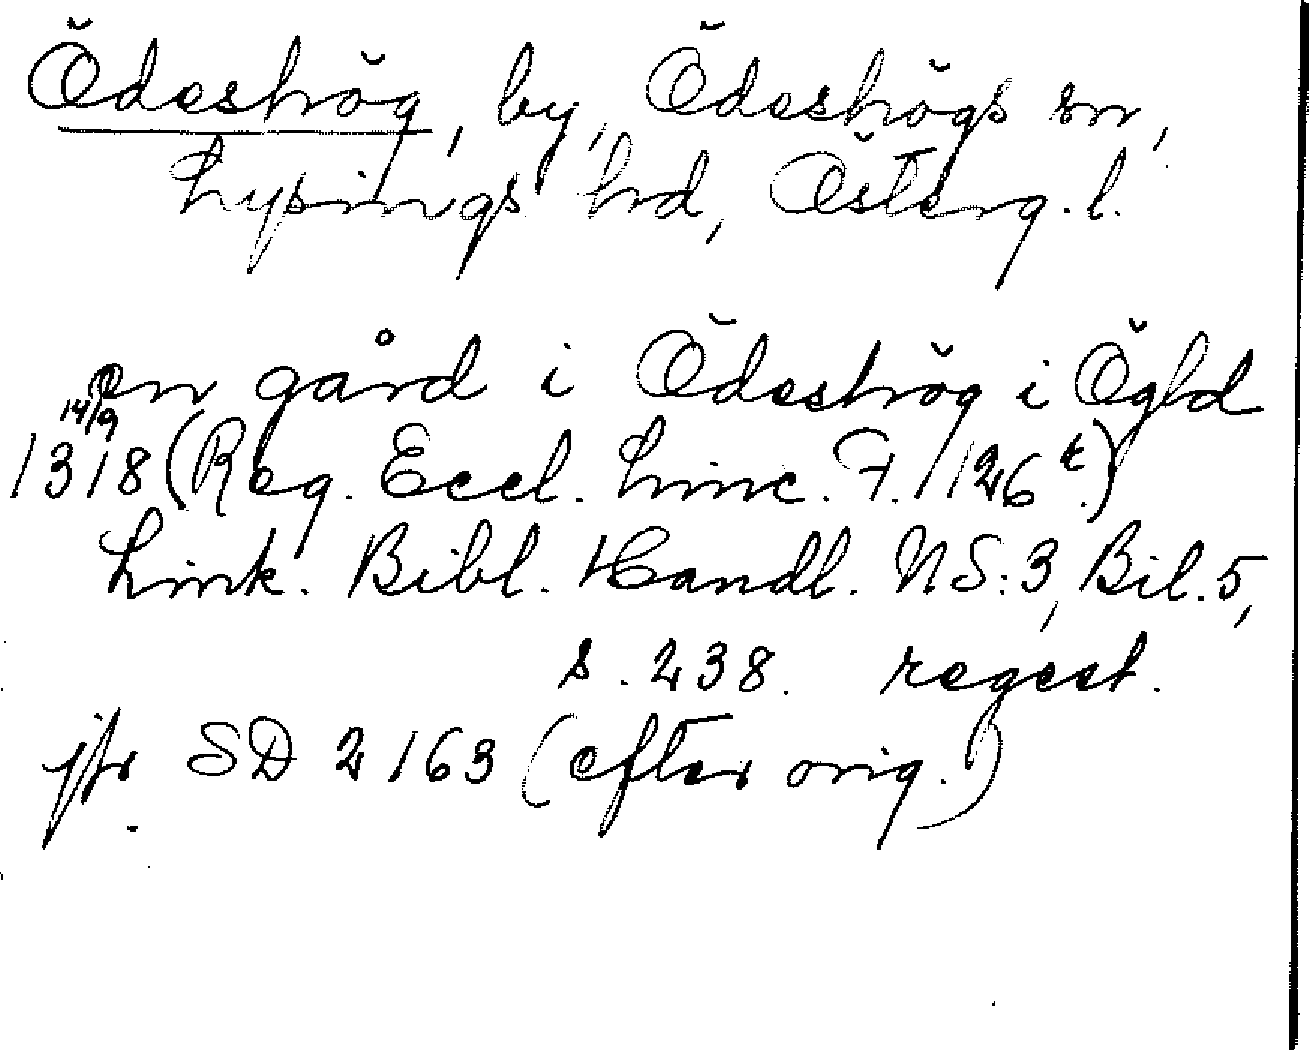 Ödeshög, by, Ödeshögs sn,
Lysings hd, Österg. l.
en gård i Ödeshög i Ögld
14/9
1318 (Reg. Eccl. Linc. F. 126 r.)
Link. Bibl. Handl. NS: 3, Bil. 5,
s. 238. regest.
jfr SD 2163 (efter orig.)